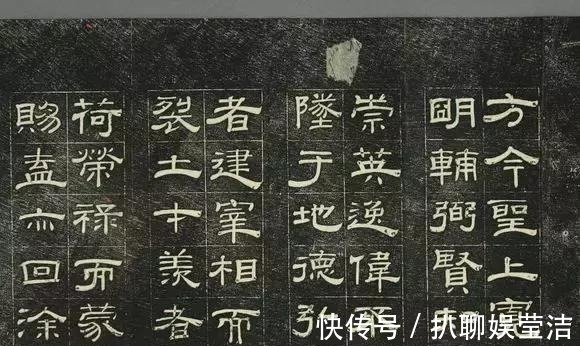 方今聖上寬
明輔弼賢
崇英逸偉不
墜于地德弘
者建宰相而
裂土才羨者
荷榮祿而蒙
賜盍亦回涂
快传号 / 扒聊娱莹洁